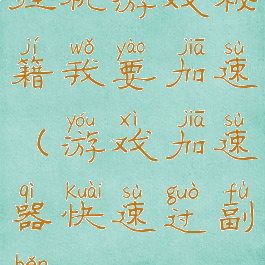 机游戏秘
jí wǒ yào jiā sù
籍我要加速
yóu xì jiā sù
（游戏加速
qì kuài sù guò fù
器快速过副
běn